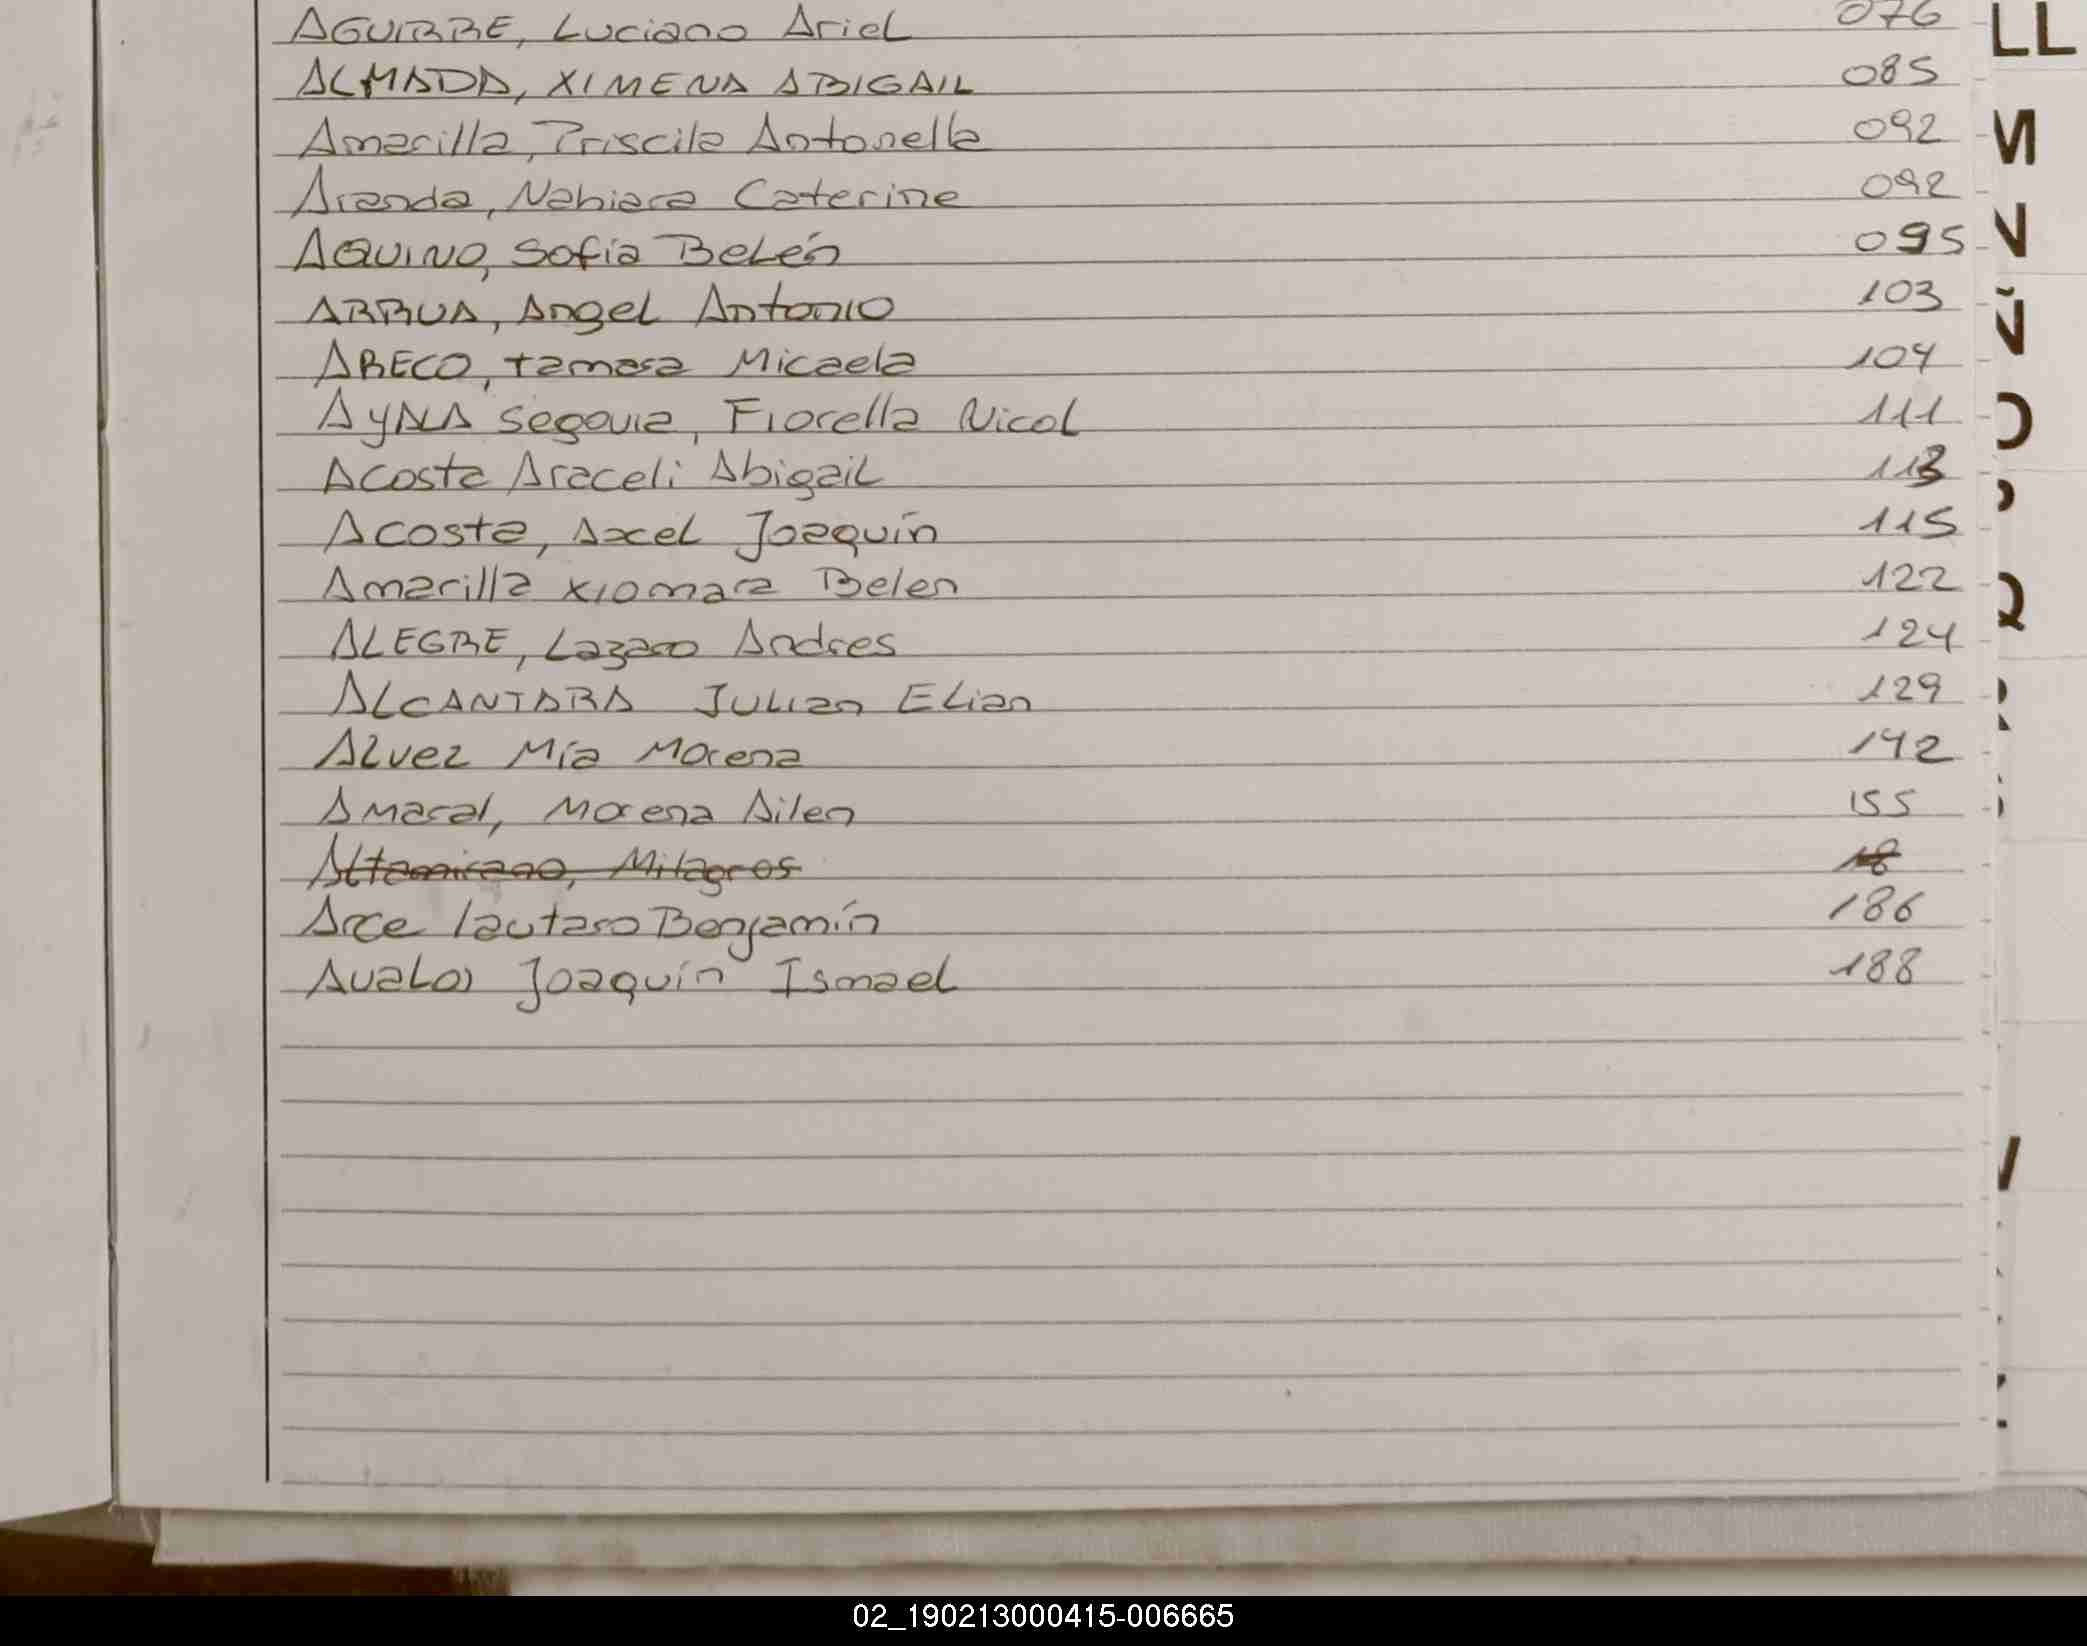 AGUIRRE, Luciano Ariel 076
ALMADA, XIMENA ABIGAIL 085
Amarilla, Priscila Antonella 092
Aranda, Nahiara Caterine 092
AQUINO, Sofía Belén 095
ARRUA, Angel Antonio 103
ARECO, tamara Micaela 104
AyALA Segovia, Fiorella Nicol 111
Acosta Araceli Abigail 113
Acosta, Axel Joaquín 115
Amarilla Xiomara Belen 122
ALEGRE, Lazaro Andres 124
ALCANTARA Julian Elian 129
Alvez Mía Morena 142
Amaral, Morena Ailen 155
Altamirano, Milagros 18
Arce lautaro Benjamín 186
Avalos Joaquín Ismael 188
LL
M
N
Ñ
O
Q
02_190213000415-006665